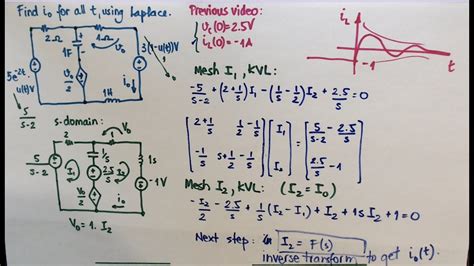 Find i₀ for all t, using Laplace.
1Ω
2Ω
1F
V₀
3(1-u(t))V
5e^{2t}.u(t)V
V₀/2
i₀
1H
5/(s-2)
s-domain:
V₀
2Ω
1Ω
1/s
1s
5/(s-2)
I₁
2.5/s
I₂
-1V
V₀/2
i₀
V₀ = 1. I₂
Previous video:
v_c(0) = 2.5V
i_L(0) = -1A
i_L
-1
t
Mesh I₁, KVL:
-5/(s-2) + (2+1/s)I₁ - (1/s - 1/2)I₂ + 2.5/s = 0
[2+1/s 1/2-1/s; -1/s s+1/2+1/s] [I₁; I₂] = [5/(s-2) - 2.5/s; 2.5/s - 1]
Mesh I₂, KVL: (I₂ = I₀)
-I₂/2 - 2.5/s + 1/s (I₂-I₁) + I₂ + 1s I₂ + 1 = 0
Next step: I₂ = F(s)
inverse transform to get i₀(t).